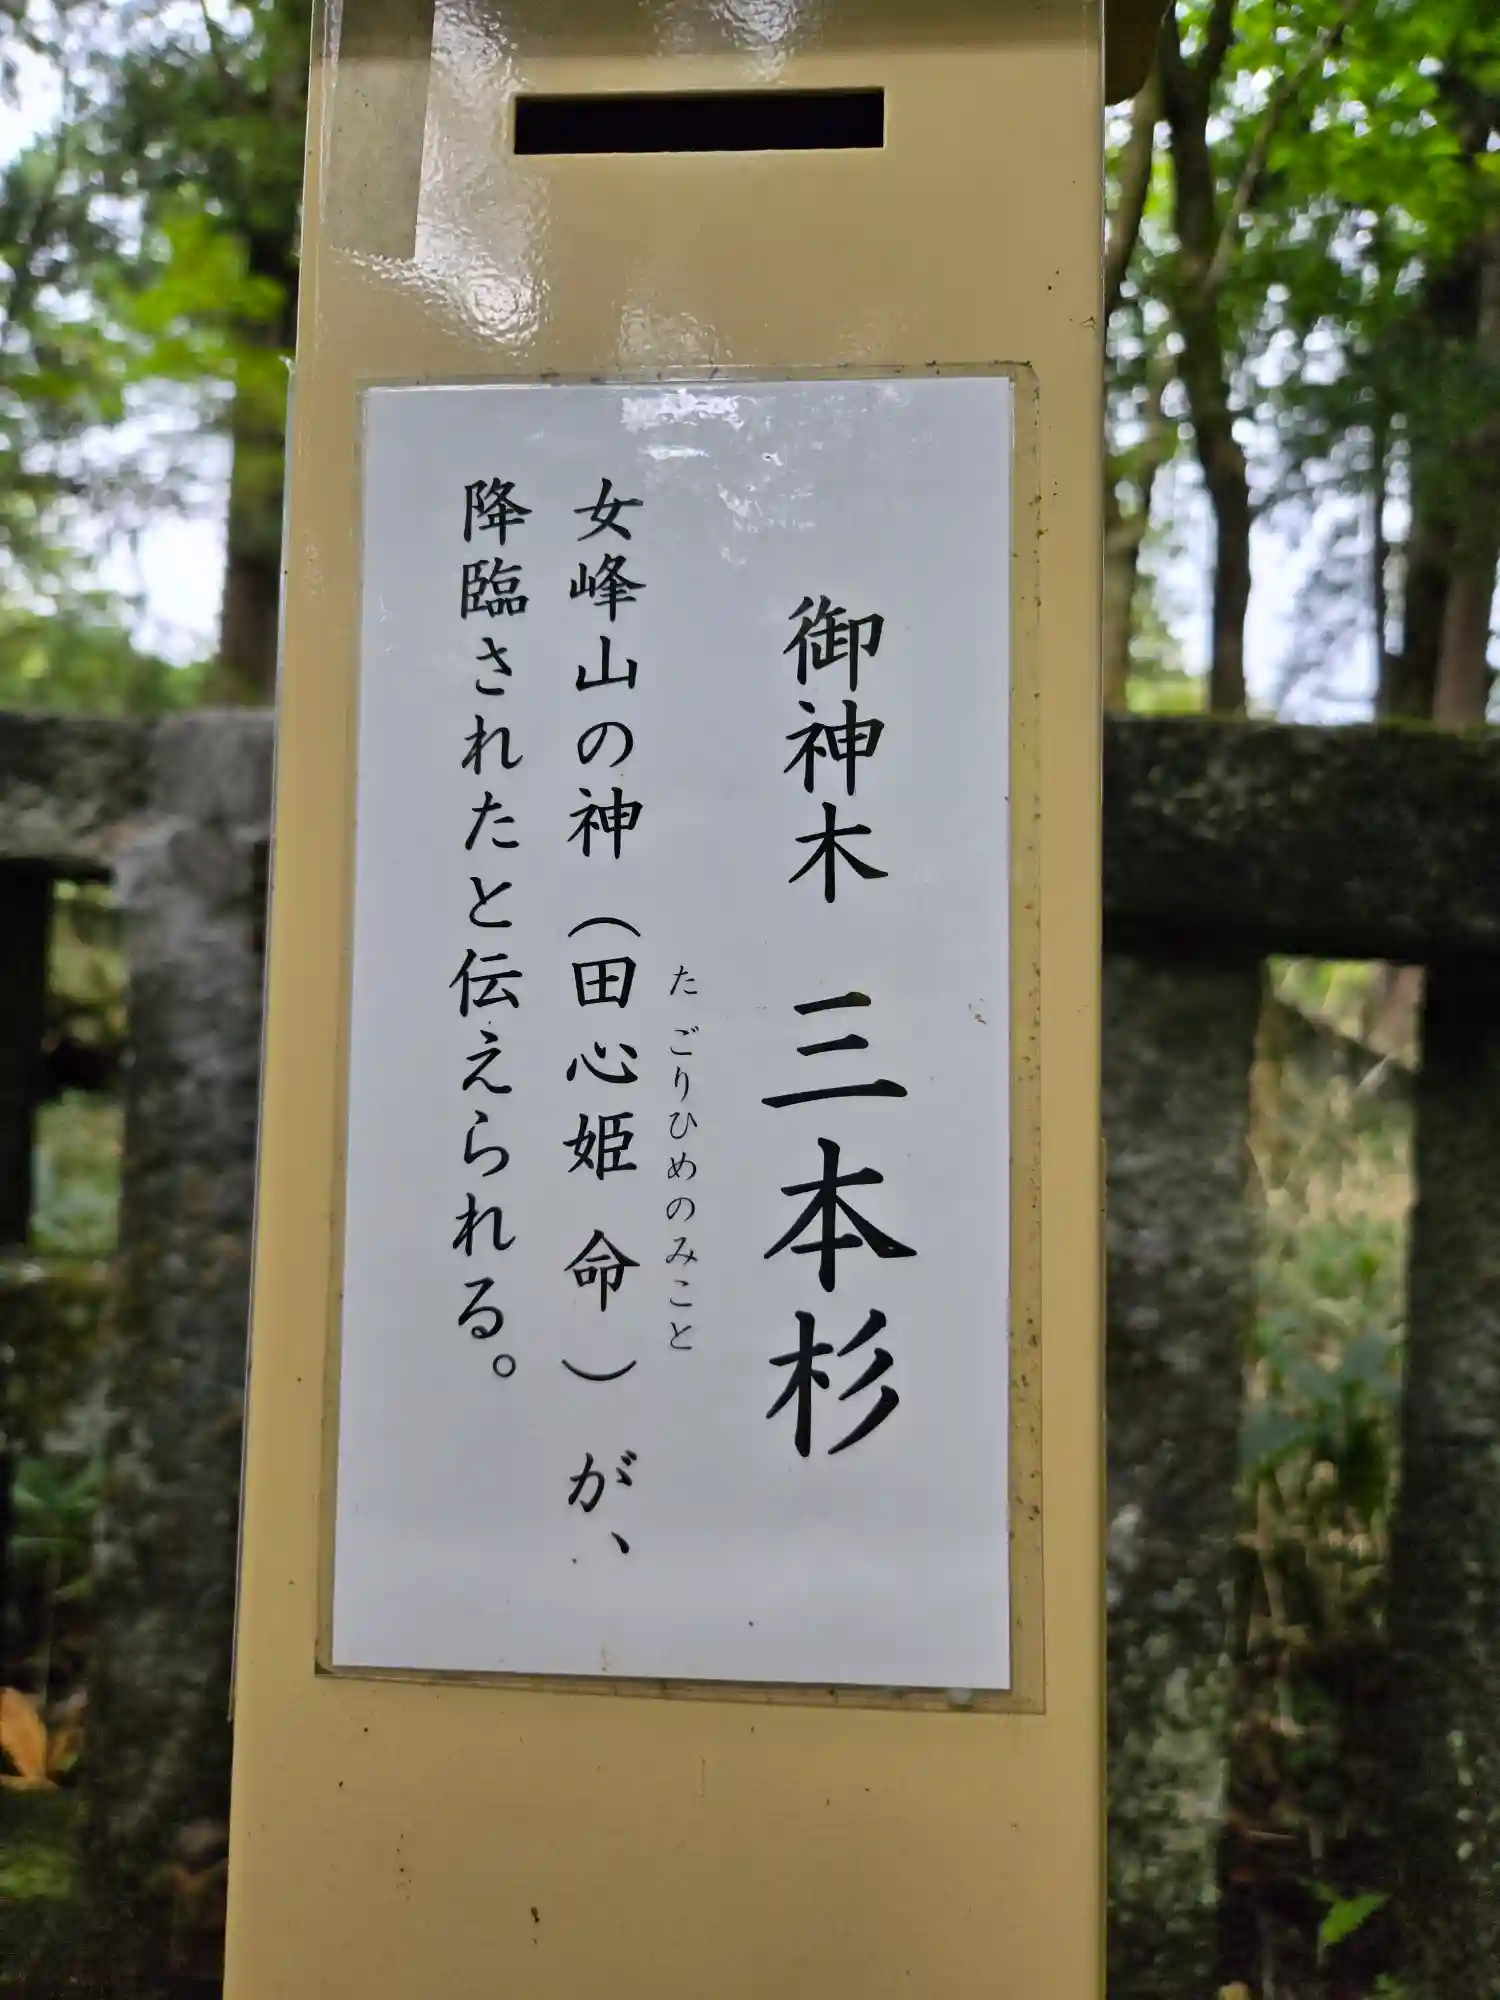 御神木 三本杉
たごりひめのみこと
女峰山の神（田心姫命）が、
降臨されたと伝えられる。